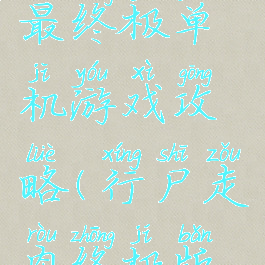 最终极单
jī yóu xì gōng
机游戏攻
lüè xíng shī zǒu
略(行尸走
ròu zhōng jí bǎn
肉终极版